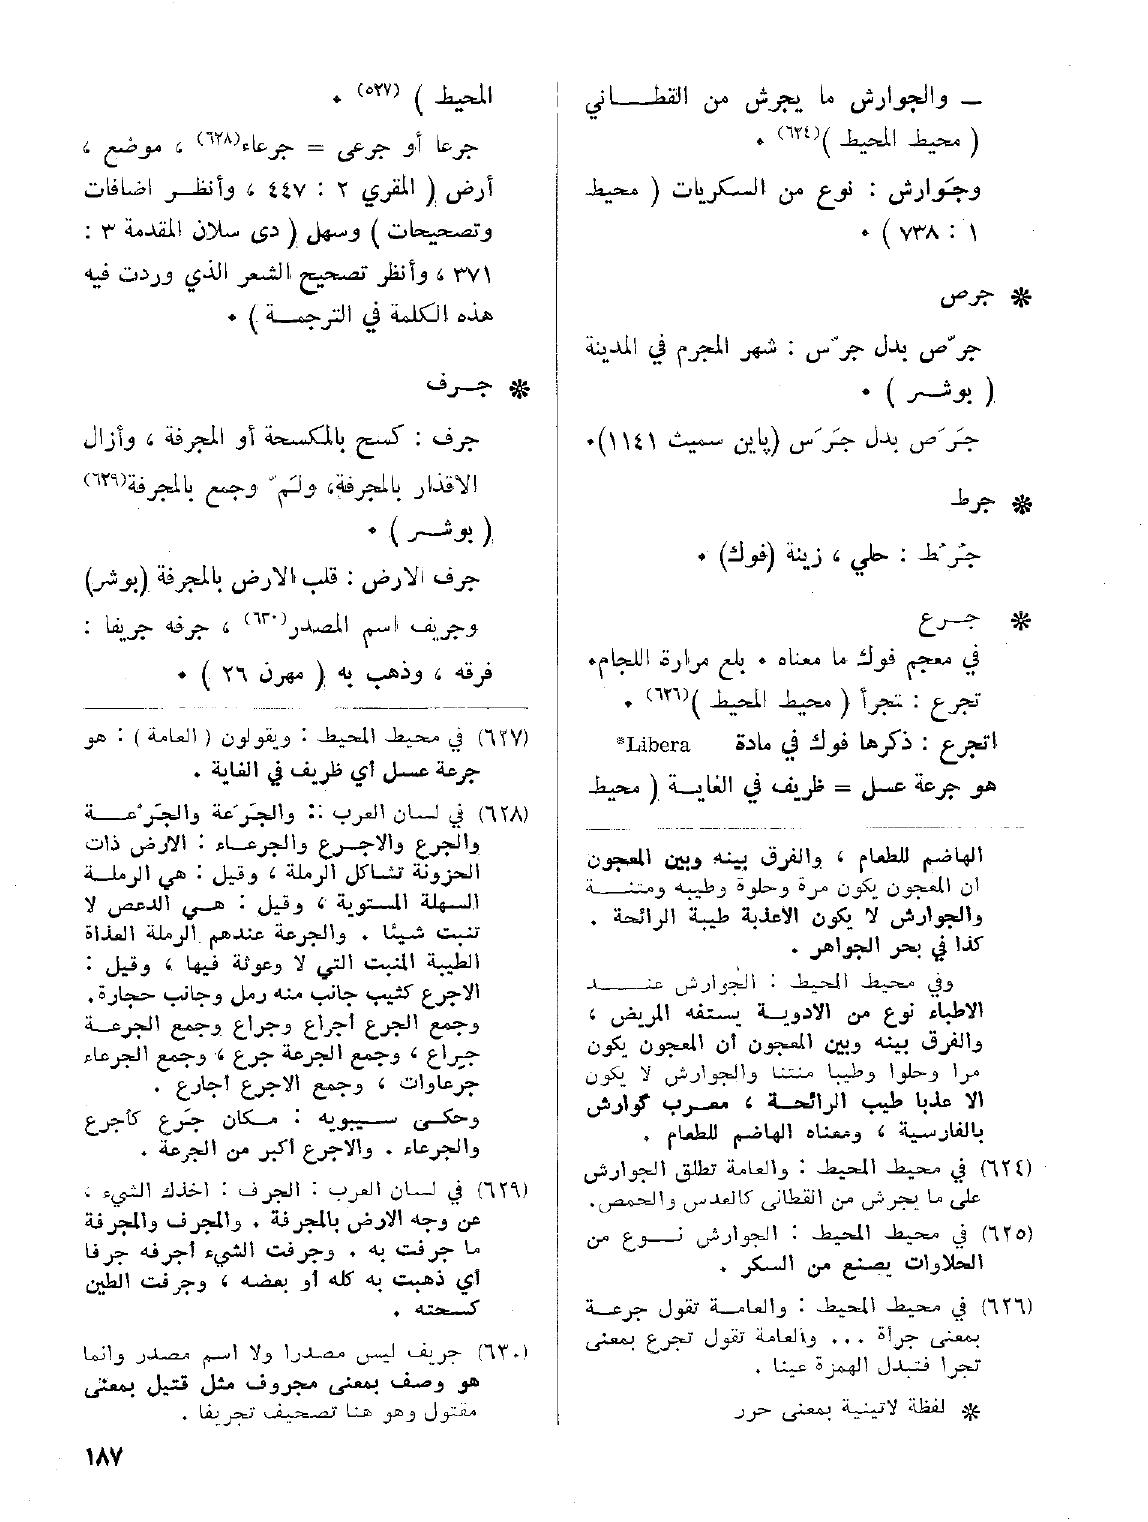 — والجوارش ما يجرش من القطـــاني
( محيط المحيط )(٦٢٤) .
وجَوارش : نوع من السكريات ( محيط
١ : ٧٣٨ ) .
* جرص
جرّص بدل جرّس : شهر المجرم في المدينة
( بوشـــر ) .
جَرَّص بدل جَرَّس (پاين سميث ١١٤١).
* جرط
جُرَّط : حلي ، زينة (فوك) .
* جــرع
في معجم فوك ما معناه . بلع مرارة اللجام.
تجرع : تجرأ ( محيط المحيط )(٦٢٦) .
اتجرع : ذكرها فوك في مادة Libera*
هو جرعة عسل = ظريف في الغايــة ( محيط
الهاضم للطعام ، والفرق بينه وبين المعجون
ان المعجون يكون مرة وحلوة وطيبه ومنتنــــة
والجوارش لا يكون الاعذبة طيبة الرائحة .
كذا في بحر الجواهر .
وفي محيط المحيط : الجُوارش عنـــــد
الاطباء نوع من الادويــة يستفه المريض ،
والفرق بينه وبين المعجون أن المعجون يكون
مرا وحلوا وطيبا منتنا والجوارش لا يكون
الا عذبا طيب الرائحــة ، معــرب گوارش
بالفارسية ، ومعناه الهاضم للطعام .
(٦٢٤) في محيط المحيط : والعامة تطلق الجوارش
على ما يجرش من القطانى كالعدس والحمص.
(٦٢٥) في محيط المحيط : الجوارش نــوع من
الحلاوات يصنع من السكر .
(٦٢٦) في محيط المحيط : والعامــة تقول جرعــة
بمعنى جرأة ... والعامة تقول تجرع بمعنى
تجرا فتبدل الهمزة عينا .
* لفظة لاتينية بمعنى حرر
المحيط ) (٥٢٧) .
جرعا أو جرعى = جرعاء(٦٢٨) ، موضع ،
أرض ( المقري ٢ : ٤٤٧ ، وأنظــر اضافات
وتصحيحات ) وسهل ( دى سلان المقدمة ٣ :
٣٧١ ، وأنظر تصحيح الشعر الذي وردت فيه
هذه الكلمة في الترجمــة ) .
* جــرف
جرف : كسح بالمكسحة أو المجرفة ، وأزال
الاقذار بالمجرفة، ولمّ وجمع بالمجرفة(٦٢٩)
( بوشــر ) .
جرف الارض : قلب الارض بالمجرفة (بوشر)
وجريف اسم المصدر(٦٣٠) ، جرفه جريفا :
فرقه ، وذهب به ( مهرن ٢٦ ) .
(٦٢٧) في محيط المحيط : ويقولون ( العامة ) : هو
جرعة عسل أي ظريف في الغاية .
(٦٢٨) في لسان العرب :: والجَرَعة والجَرْعــــة
والجرع والاجــرع والجرعــاء : الارض ذات
الحزونة تشاكل الرملة ، وقيل : هي الرملــة
السهلة المستوية ، وقيل : هــي الدعص لا
تنبت شيئا . والجرعة عندهم الرملة العذاة
الطيبة المنبت التي لا وعوثة فيها ، وقيل :
الاجرع كثيب جانب منه رمل وجانب حجارة.
وجمع الجرع أجراع وجراع وجمع الجرعــة
جِراع ، وجمع الجرعة جرع ، وجمع الجرعاء
جرعاوات ، وجمع الاجرع اجارع .
وحكــى سيبويه : مكان جَرَع كأجرع
والجرعاء . والاجرع اكبر من الجرعة .
(٦٢٩) في لسان العرب : الجرف : اخذك الشيء ،
عن وجه الارض بالمجرفة . والمجرف والمجرفة
ما جرفت به . وجرفت الشيء أجرفه جرفا
أي ذهبت به كله أو بعضه ، وجرفت الطين
كسحته .
(٦٣٠) جريف ليس مصدرا ولا اسم مصدر وانما
هو وصف بمعنى مجروف مثل قتيل بمعنى
مقتول وهو هنا تصحيف تجريفا .
١٨٧